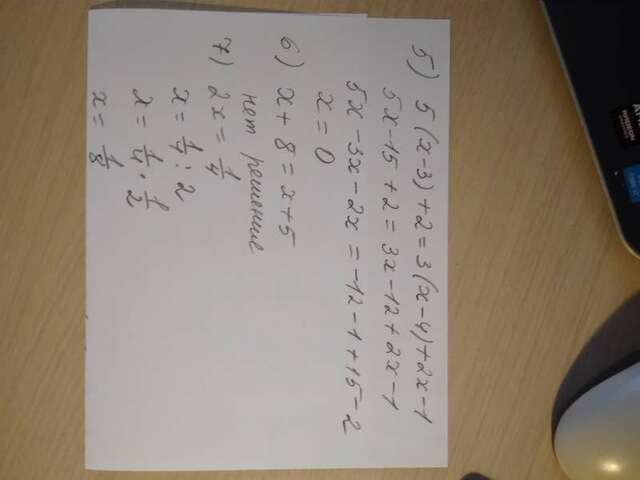 5) 5(x-3)+2=3(x-4)+2x-1
5x-15+2=3x-12+2x-1
5x-3x-2x=-12-1+15-2
x=0
6) x+8=x+5
нет решение
7) 2x=1/4
x=1/4:2
x=1/4·1/2
x=1/8